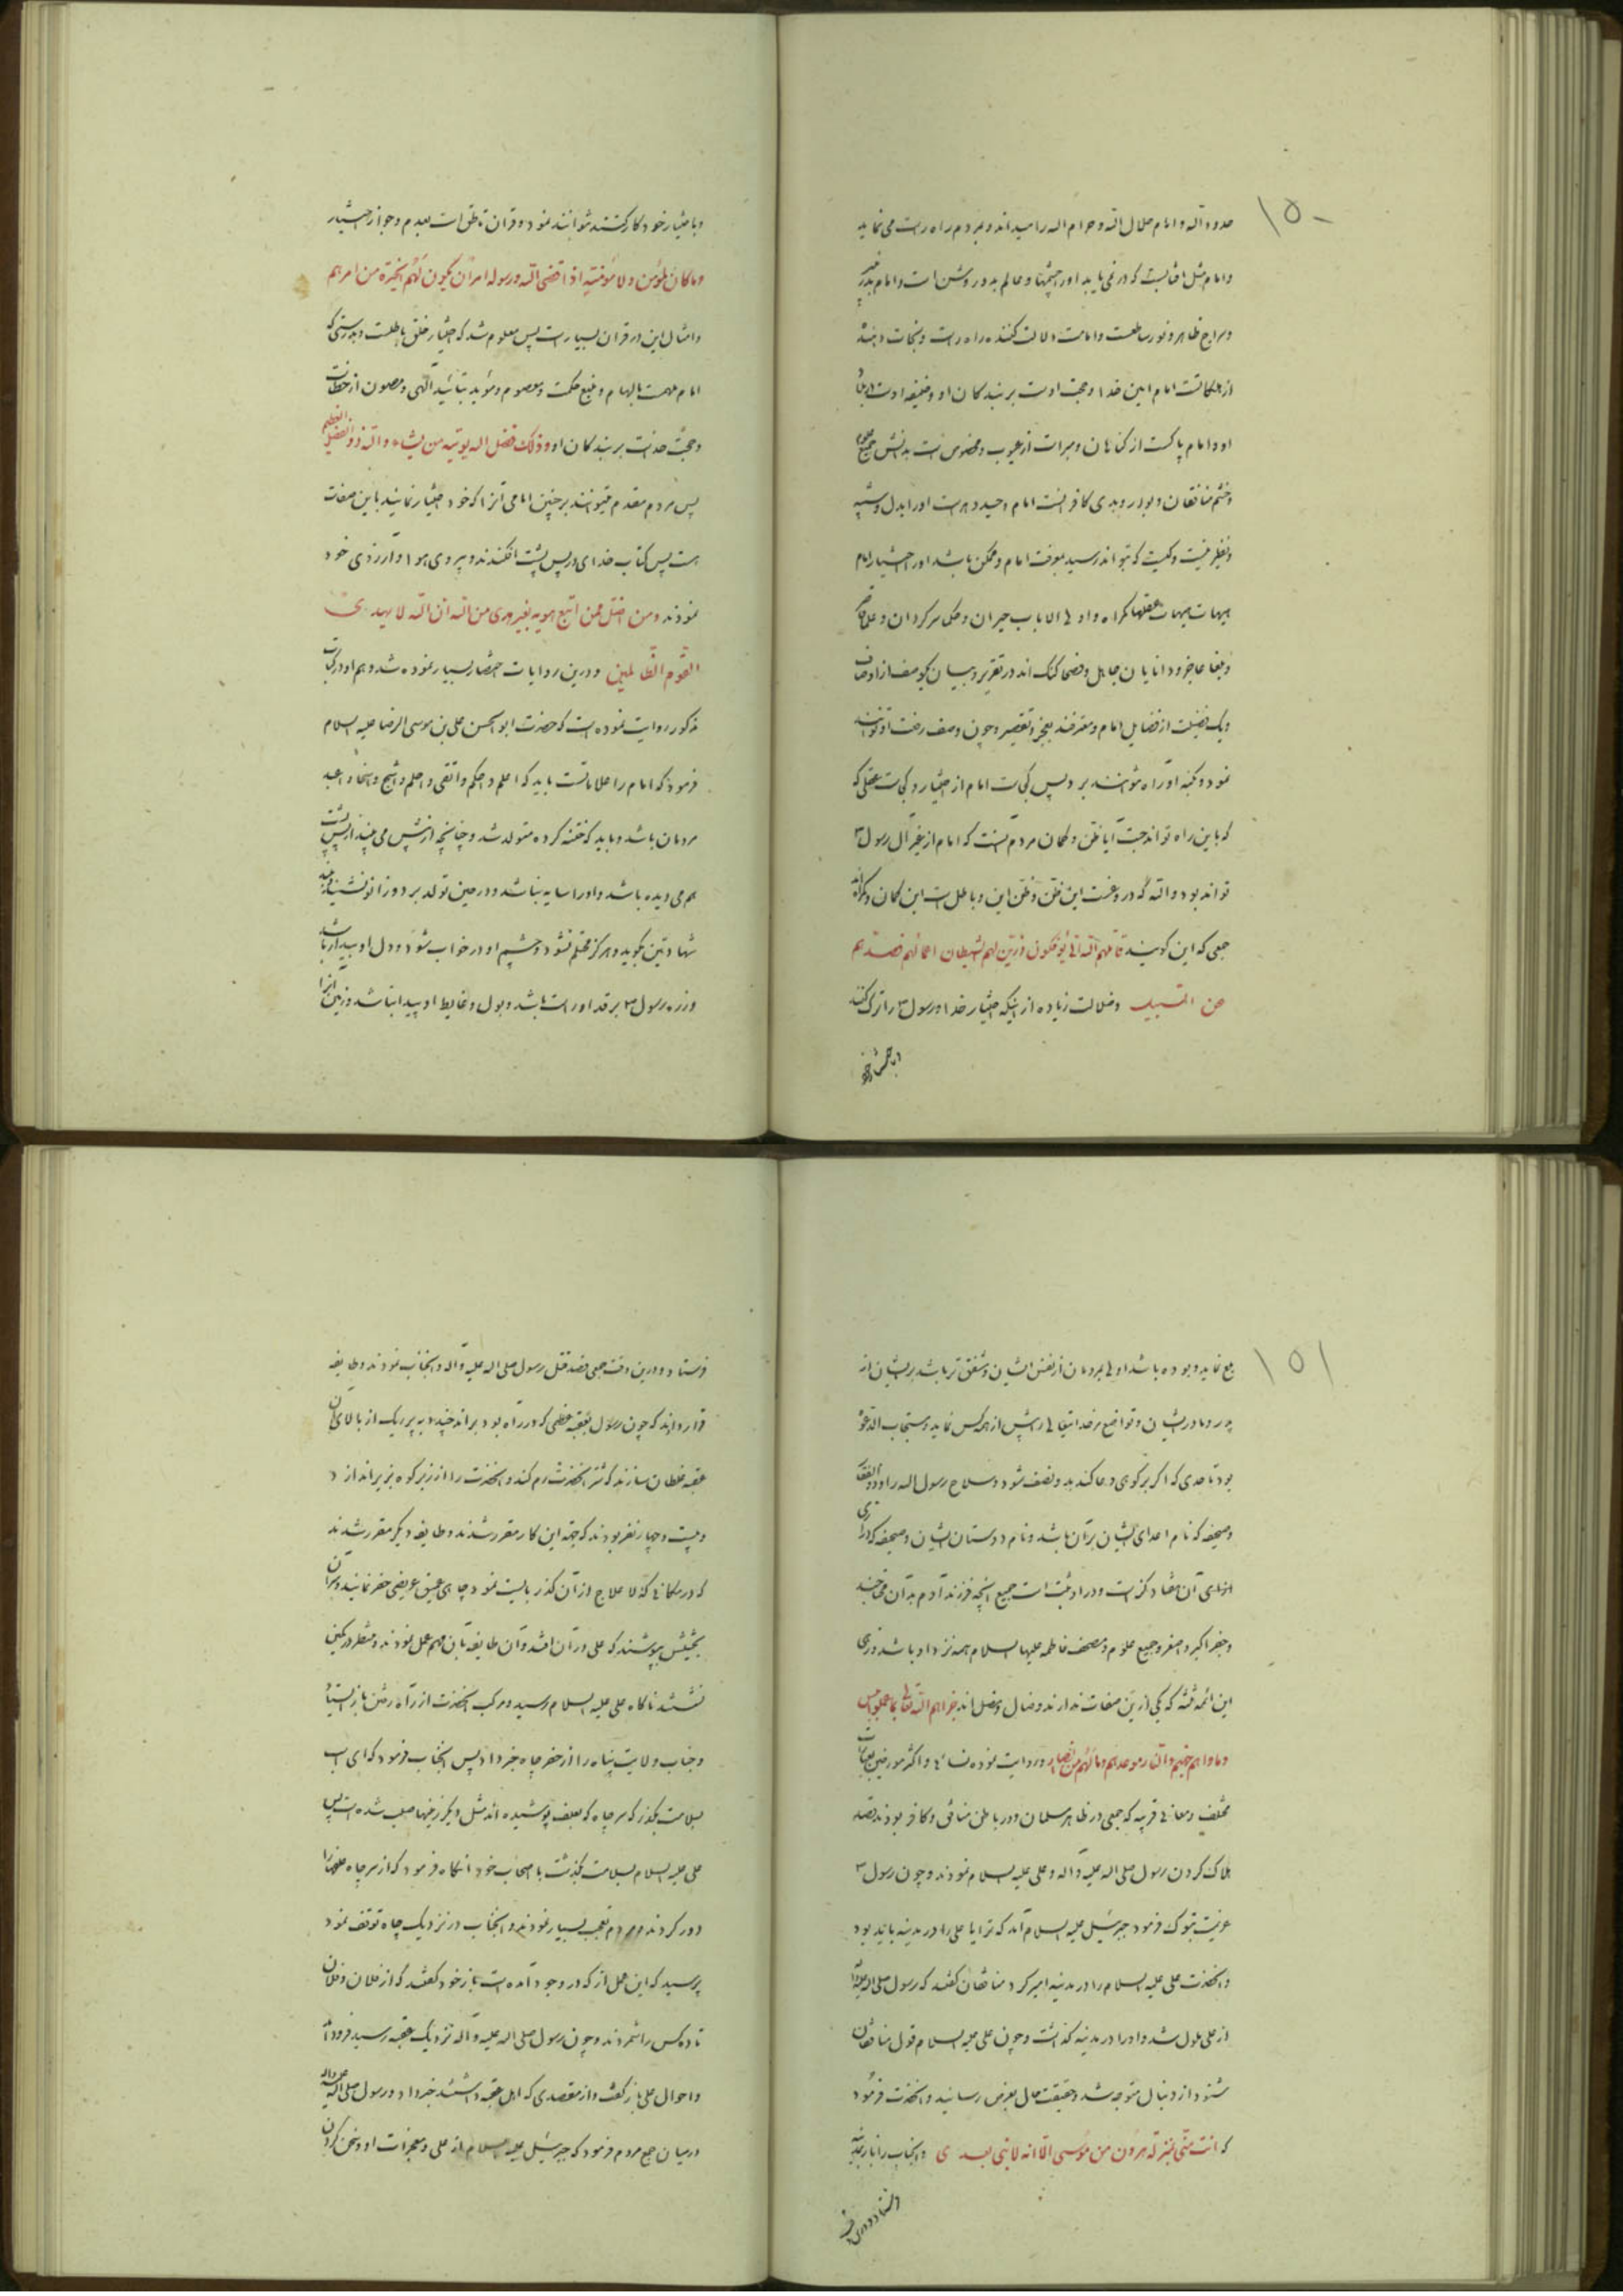 ۱۵۰
حدود اله و امام حلال اله و حرام اله را میداند و مردم راه راست می نماید
و امام مثل افتابست که در نمی یابد اورا چشمها و عالم بدو روشن است و امام بدر منیر
و سراج ظاهر و نور ساطعست و امامت دلالت کننده براه راست و نجات دهنده
از مهلکاتست امام امین خدا و حجت اوست بر بندکان او و خلیفه اوست
او و امام پاکست از کناهان و مبراست از عیوب و مخصوص است بدانش جمیع علوم
و خشم منافقان و بوار کافرانست امام وحید دهرست اورا بدل و شبیه
و نظیر نیست و کیست که تواند رسید بمعرفت امام و ممکن باشد اورا اختیار امام
هیهات هیهات عقلها کمراه و اولی الالباب حیران و حکما سرکردان و علما قاصر
و بلغا عاجز و دانایان جاهل و فصحا کنک اند در تقریر و بیان یک وصف از اوصاف
و یک فضیلت از فضایل امام و معترفند بعجز و تقصیر و چون وصف رفعت او توانند
نمود و بکنه او راه توانند برد پس کی است امام از اختیار و کی است عقلی که
که باین راه تواند جست آیا ظن و کمان مردم آنست که امام از غیر آل رسول
تواند بود واله که دروغست این ظن و باطل است این کمان و کمراه اند
جمعی که این کویند قاتلهم اله انی یؤفکون و زین لهم الشیطان اعمالهم فصدهم
عن السبیل و ضلالت زیاده از اینکه اختیار خدا و رسول را ترک کنند
و باختیار خود
و باختیار خود کار کنند نتوانند نمود و قران ناطق است بعدم جواز اختیار
وما کان لمؤمن ولا مؤمنة اذا قضی اله ورسوله امرا ان یکون لهم الخیرة من امرهم
و امثال این در قران بسیار است پس معلوم شد که اختیار خلق باطلست و بدرستی که
امام ملهمست بالهام و منبع حکمت و معصوم و مؤید بتأیید الهی و مصون از خطاست
و حجت خداست بر بندکان او وذلک فضل اله یؤتیه من یشاء واله ذو الفضل العظیم
پس مردم مقدم میتوانند بر چنین امامی آنرا که خود اختیار نمایند باین صفات
هست پس کتاب خدای در پس پشت افکندند و پیروی هوا و آرزوی خود
نمودند ومن اضل ممن اتبع هویه بغیر هدی من اله ان اله لا یهدی
القوم الظالمین و درین روایات اختصار بسیار نموده شد و هم او در کتاب
مذکور روایت نموده است که حضرت ابو الحسن علی بن موسی الرضا علیه السلام
فرمود که امام را علاماتست باید که اعلم و احکم و اتقی و احلم و اشجع و اسخا و اعبد
مردمان باشد و باید که ختنه کرده متولد شد و چنانچه از پیش می بیند از پس پشت
هم می دیده باشد و اورا سایه نباشد و در حین تولد بر دو زانو نشیند و بلند
شهادتین بکوید و هرکز محتلم نشود و چشم او در خواب شود و دل او بیدار باشد
و زره رسول بر قد او راست باشد و بول و غایط او پیدا نباشد و زمین آنرا
۱۵۱
بلع نماید و بوده باشد اولی بمردمان از نفس ایشان و مشفق تر باشد بر ایشان از
پدر و مادر ایشان و تواضع مر خدایتعالی را بیش از همه کس نماید و مستجاب الدعوة
بود تا حدی که اکر بر کوهی دعا کند بدو نصف شود و سلاح رسول اله را و ذو الفقار
و صحیفه که نام اعدای ایشان بر آن باشد و نام دوستان ایشان و صحیفه که درازی
آن هفتاد کزست و در او ثبت است جمیع انچه فرزند آدم بدان محتاجند
و جفر اکبر و اصغر و جمیع علوم و مصحف فاطمه علیها السلام همه نزد او باشد و بجز
این ائمه ثلثه که یکی ازین صفات ندارند و ضال و مضل اند جزاهم اله تعالی بما عملوا
و ماواهم جهنم والنار موعدهم وما لهم من انصار و روایت نموده نسائی و اکثر مورخین بعبارات
مختلف و معانی قریبه که جمعی در ظاهر مسلمان و در باطن منافق و کافر بودند قصد
هلاک کردن رسول صلی اله علیه وآله و علی علیه السلام نمودند و چون رسول
عزیمت تبوک فرمود جبرئیل علیه السلام آمد که ترا یا علی را در مدینه باید بود
و انحضرت علی علیه السلام را در مدینه امیر کرد منافقان کفتند که رسول صلی اله علیه وآله
از علی ملول شد و اورا در مدینه کذاشت و چون علی علیه السلام قول منافقان
شنود از دنبال متوجه شد و حقیقت حال بعرض رسانید و انحضرت فرمود
که انت منی بمنزلة هرون من موسی الا انه لا نبی بعدی و انجناب را باز بمدینه
فرستاد و درین وقت جمعی قصد قتل رسول صلی اله علیه وآله و انجناب نمودند و طایفه
قرار دادند که چون رسول بعقبه عظمی که در راه بود براند چند دبه پر ریک از بالای آن
عقبه غلطان سازند که شتر انحضرت رم کند و انحضرت را از زبر کوه بزیر اندازد
و بیست و چهار نفر بودند که جهة این کار مقرر شدند و طایفه دیکر مقرر شدند
که در مکانی که لا علاج از آن کذر بایست نمود چاهی عمیق عریضی حفر نمایند و سر آن
بحشیش بپوشند که علی در آن افتد و آن طایفه بآن مهم عمل نمودند و منتظر در کمین
نشستند ناکاه علی علیه السلام رسید و مرکب انحضرت از راه رفتن باز ایستاد
و جناب ولایت پناه را از حفر چاه خبر داد پس انجناب فرمود که ای اسب
بسلامت بکذر که سر چاه که بعلف پوشیده اند مثل دیکر زمینها صلب شده است پس
علی علیه السلام بسلامت بکذشت با اصحاب خود انکاه فرمود که از سر چاه علفها را
دور کردند و مردم تعجب بسیار نمودند و انجناب در نزدیک چاه توقف نمود
پرسید که این عمل از که در وجود آمده است باز خود کفتند که از فلان و فلان
تا ده کس را شمردند و چون رسول صلی اله علیه وآله نزدیک عقبه رسید فرود آمد
و احوال علی باز کفت و از مقصدی که اهل عقبه داشتند خبر داد و رسول صلی اله علیه وآله
در میان جمع مردم فرمود که جبرئیل علیه السلام از علی و معجزات او و سخن کردن